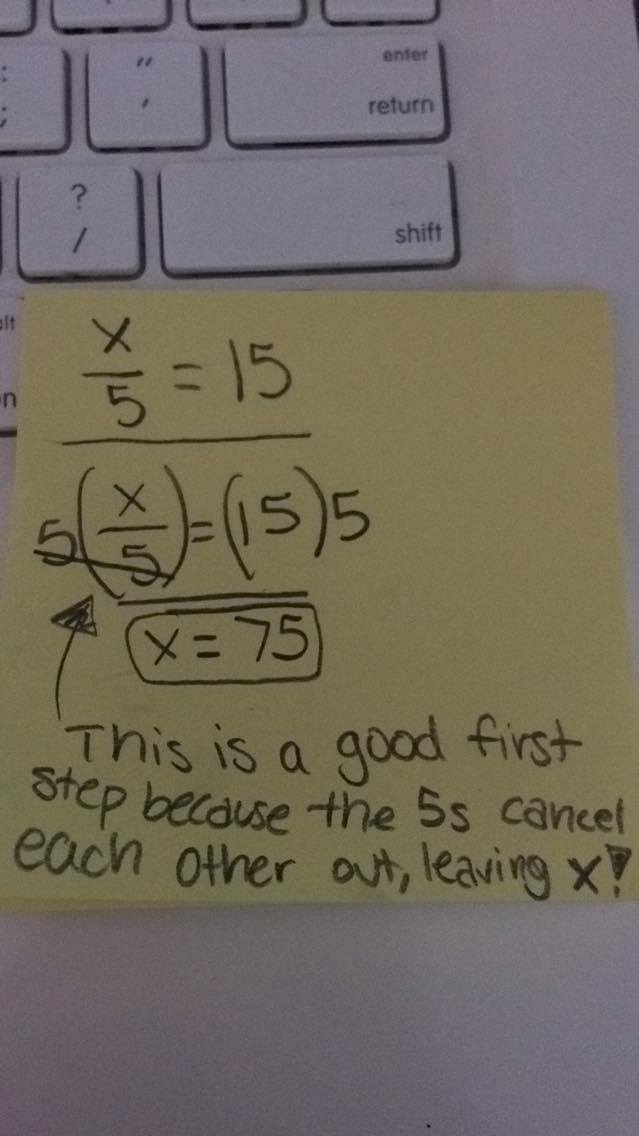 : "
; ' enter
return
?
/ shift
alt
x/5 = 15
5(x/5) = (15)5
x = 75
This is a good first
step because the 5s cancel
each other out, leaving x!